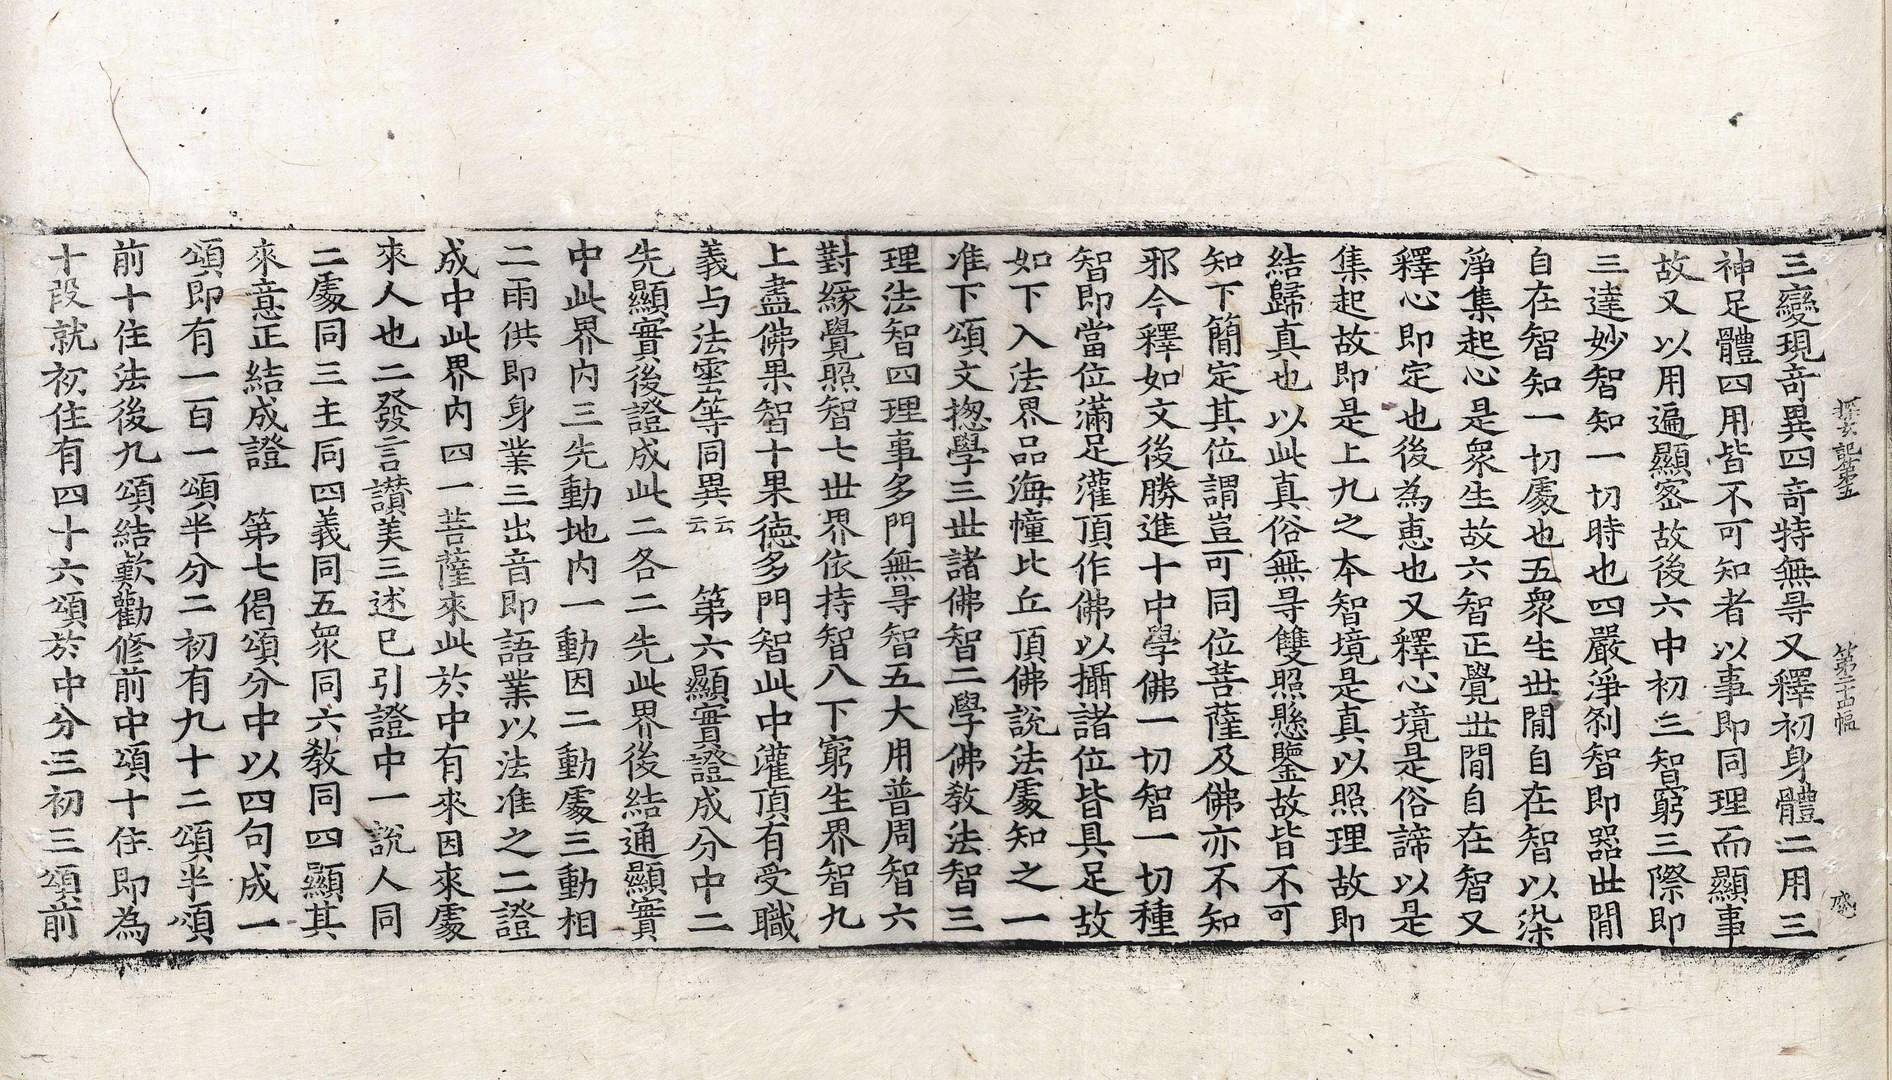 探玄記第五 第二十四幅 盛
三變現奇異四奇特無㝵又釋初身體二用三
神足體四用皆不可知者以事即同理而顯事
故又以用遍顯密故後六中初三智窮三際即
三達妙智知一切時也四嚴淨刹智即器世間
自在智知一切處也五衆生世間自在智以染
淨集起心是衆生故六智正覺世間自在智又
釋心即定也後為惠也又釋心境是俗諦以是
集起故即是上九之本智境是真以照理故即
結歸真也以此真俗無㝵雙照懸鑒故皆不可
知下簡定其位謂豈可同位菩薩及佛亦不知
邪今釋如文後勝進十中學佛一切智一切種
智即當位滿足灌頂作佛以攝諸位皆具足故
如下入法界品海幢比丘頂佛說法處知之一
准下頌文揔學三世諸佛智二學佛教法智三
理法智四理事多門無㝵智五大用普周智六
對緣覺照智七世界依持智八下窮生界智九
上盡佛果智十果德多門智此中灌頂有受職
義与法雲等同異云云 第六顯實證成分中二
先顯實後證成此二各二先此界後結通顯實
中此界内三先動地内一動因二動處三動相
二雨供即身業三出音即語業以法准之二證
成中此界内四一菩薩來此於中有來因來處
來人也二發言讃美三述已引證中一說人同
二處同三主同四義同五衆同六教同四顯其
來意正結成證 第七偈頌分中以四句成一
頌即有一百一頌半分二初有九十二頌半頌
前十住法後九頌結歎勸修前中頌十住即為
十段就初住有四十六頌於中分三初三頌前